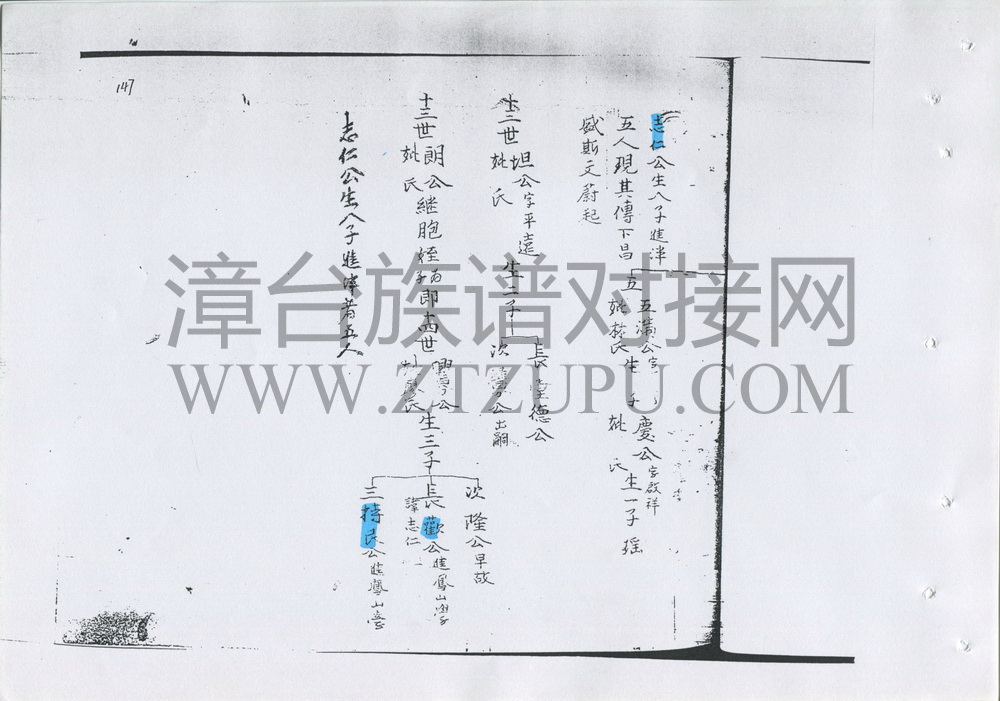 147
志仁公生八子進泮
五人現其傳下昌
盛斯文蔚起
五 五 公字
妣 氏生 子
慶公字啟祥
妣 氏生一子 瑶
十三世坦公字平遠 生二子
妣 氏
長 德公
次 公出嗣
十三世朗公继胞姪為子即十四世 公
妣 氏
妣 氏生三子
次 隆公早故
長 歡公進鳳山學
諱志仁
三 持民公進鳳山學
志仁公生八子進泮者五人
漳台族谱对接网
WWW.ZTZUPU.COM